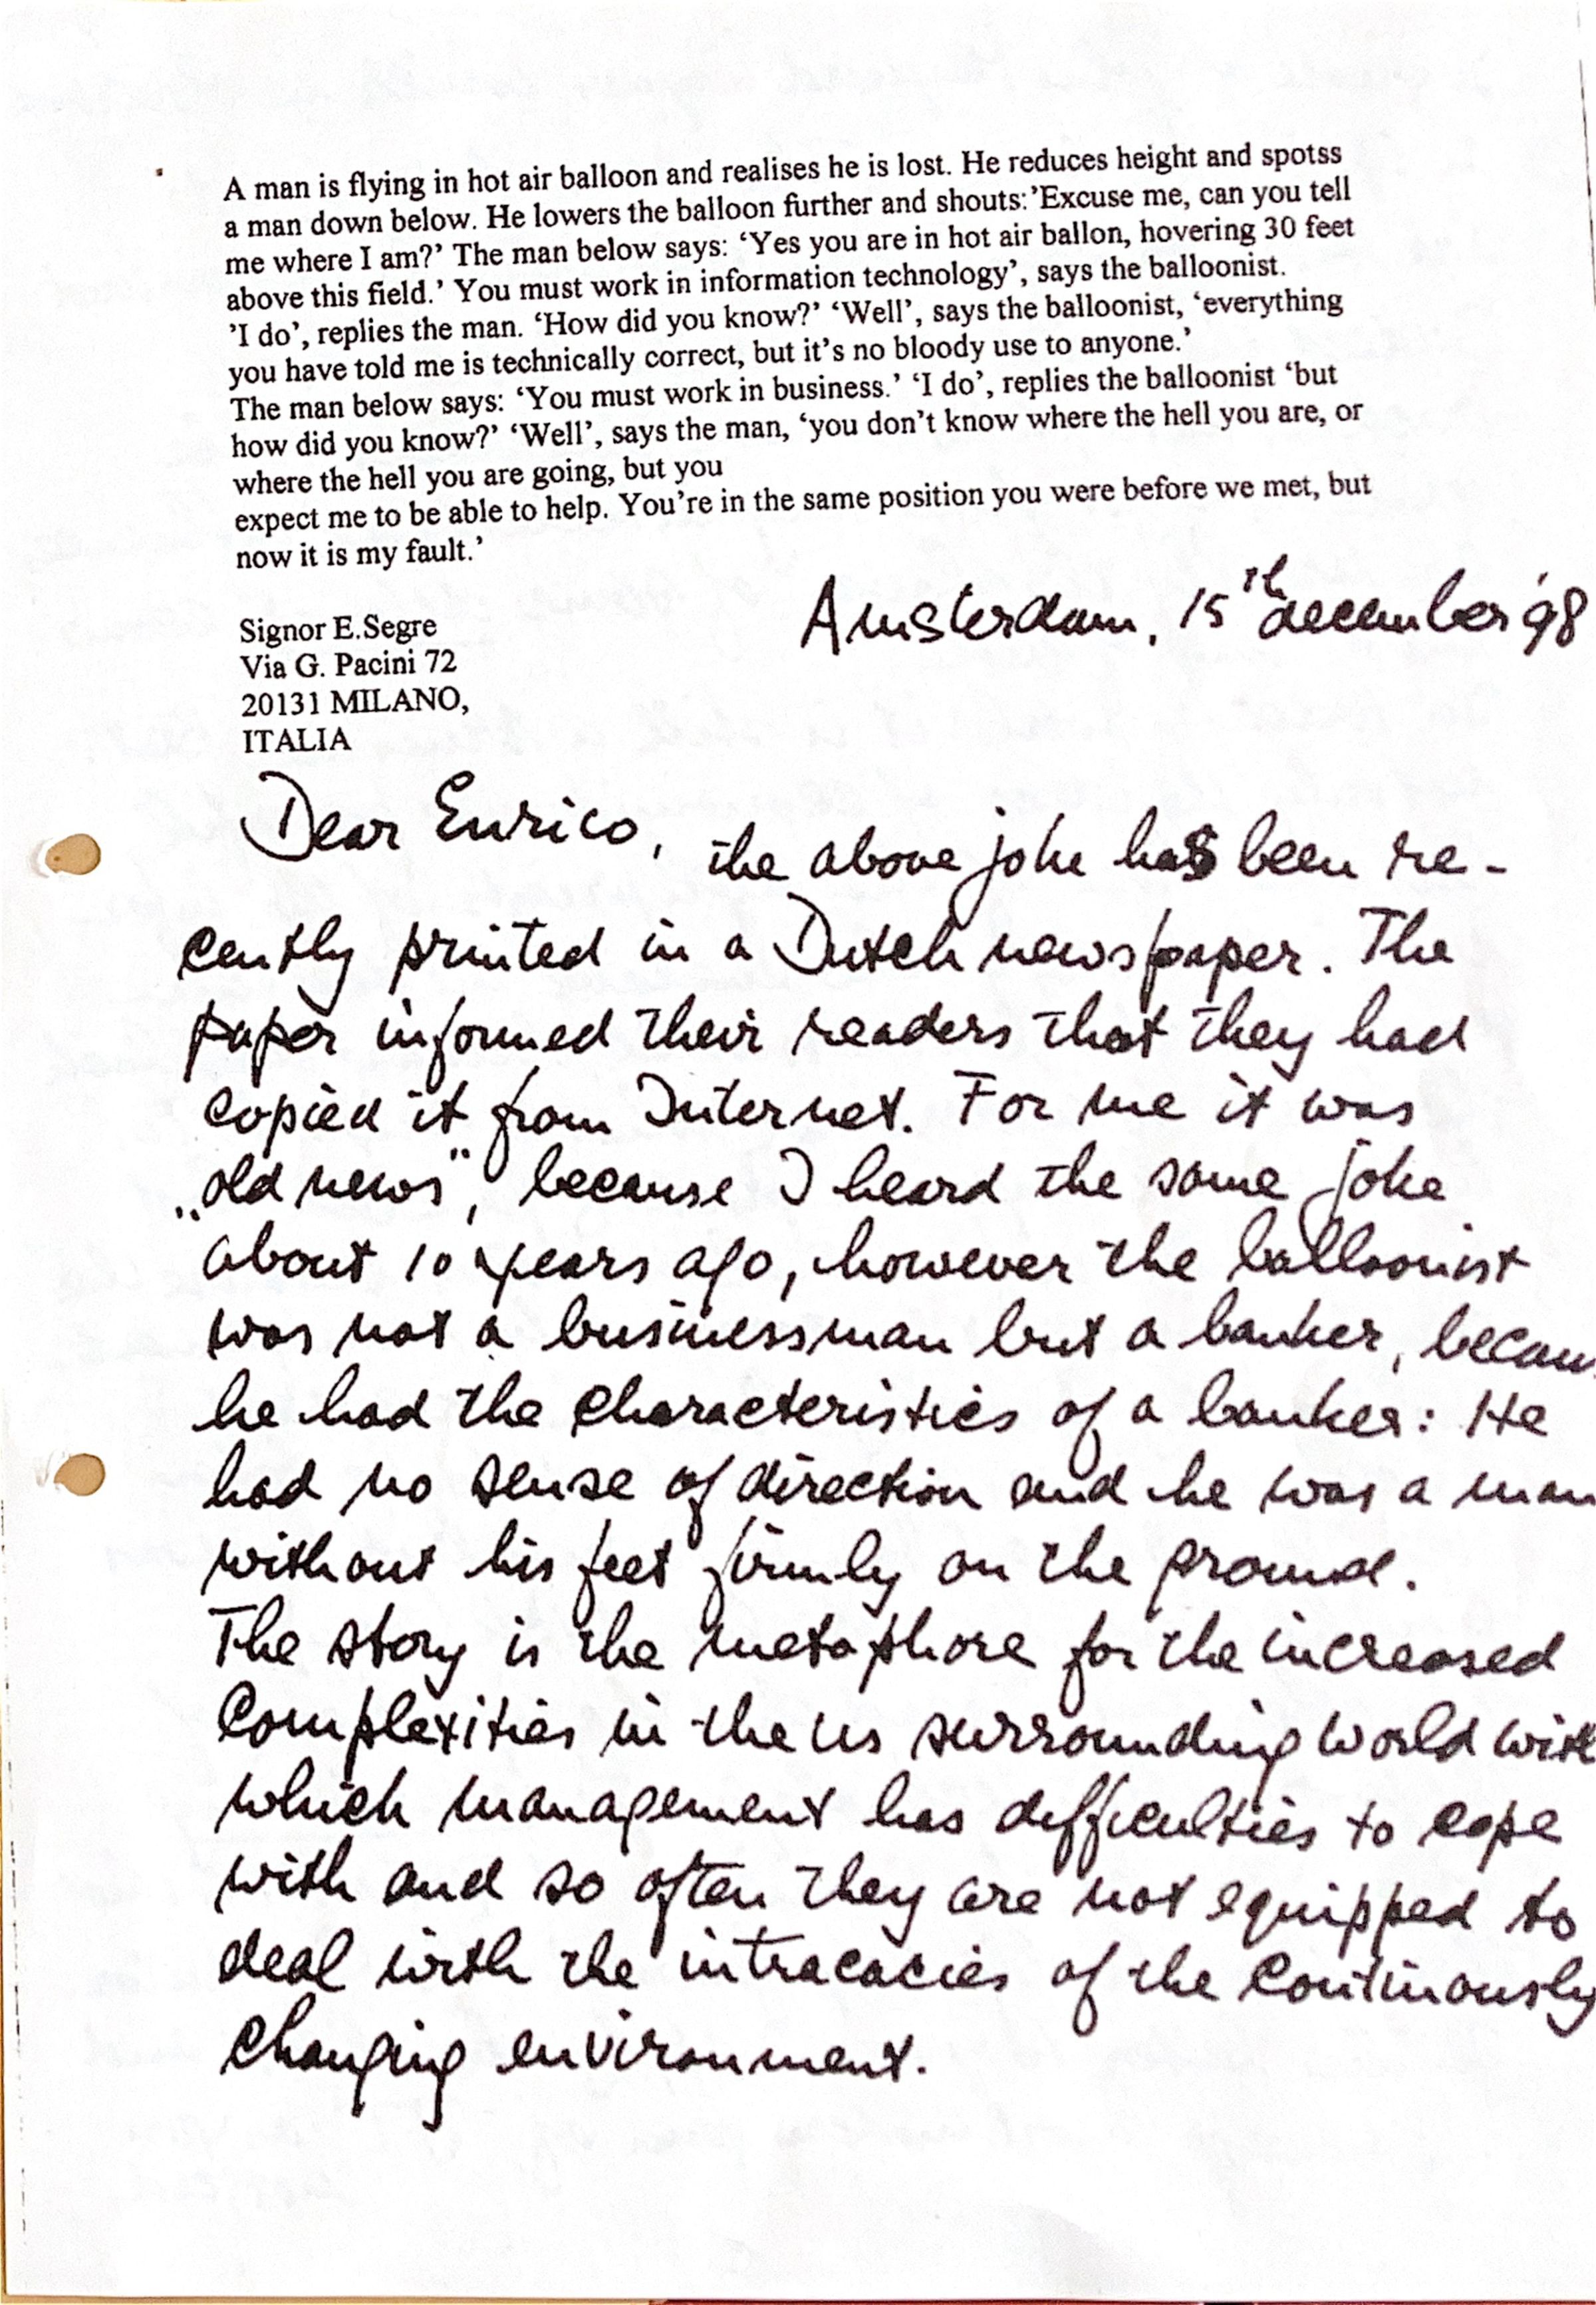 A man is flying in hot air balloon and realises he is lost. He reduces height and spotss
a man down below. He lowers the balloon further and shouts:’Excuse me, can you tell
me where I am?’ The man below says: ‘Yes you are in hot air ballon, hovering 30 feet
above this field.’ You must work in information technology’, says the balloonist.
’I do’, replies the man. ‘How did you know?’ ‘Well’, says the balloonist, ‘everything
you have told me is technically correct, but it’s no bloody use to anyone.’
The man below says: ‘You must work in business.’ ‘I do’, replies the balloonist ‘but
how did you know?’ ‘Well’, says the man, ‘you don’t know where the hell you are, or
where the hell you are going, but you
expect me to be able to help. You’re in the same position you were before we met, but
now it is my fault.’
Amsterdam, 15th december '98
Signor E.Segre
Via G. Pacini 72
20131 MILANO,
ITALIA
Dear Enrico, the above joke has been re-
cently printed in a Dutch newspaper. The
paper informed their readers that they had
copied it from Internet. For me it was
„old news", because I heard the same joke
about 10 years ago, however the balloonist
was not a businessman but a banker, becau
he had the characteristics of a banker: He
had no sense of direction and he was a man
without his feet firmly on the ground.
The story is the metaphore for the increased
complexities in the us surrounding world with
which management has difficulties to cope
with and so often they are not equipped to
deal with the intracacies of the continously
changing environment.